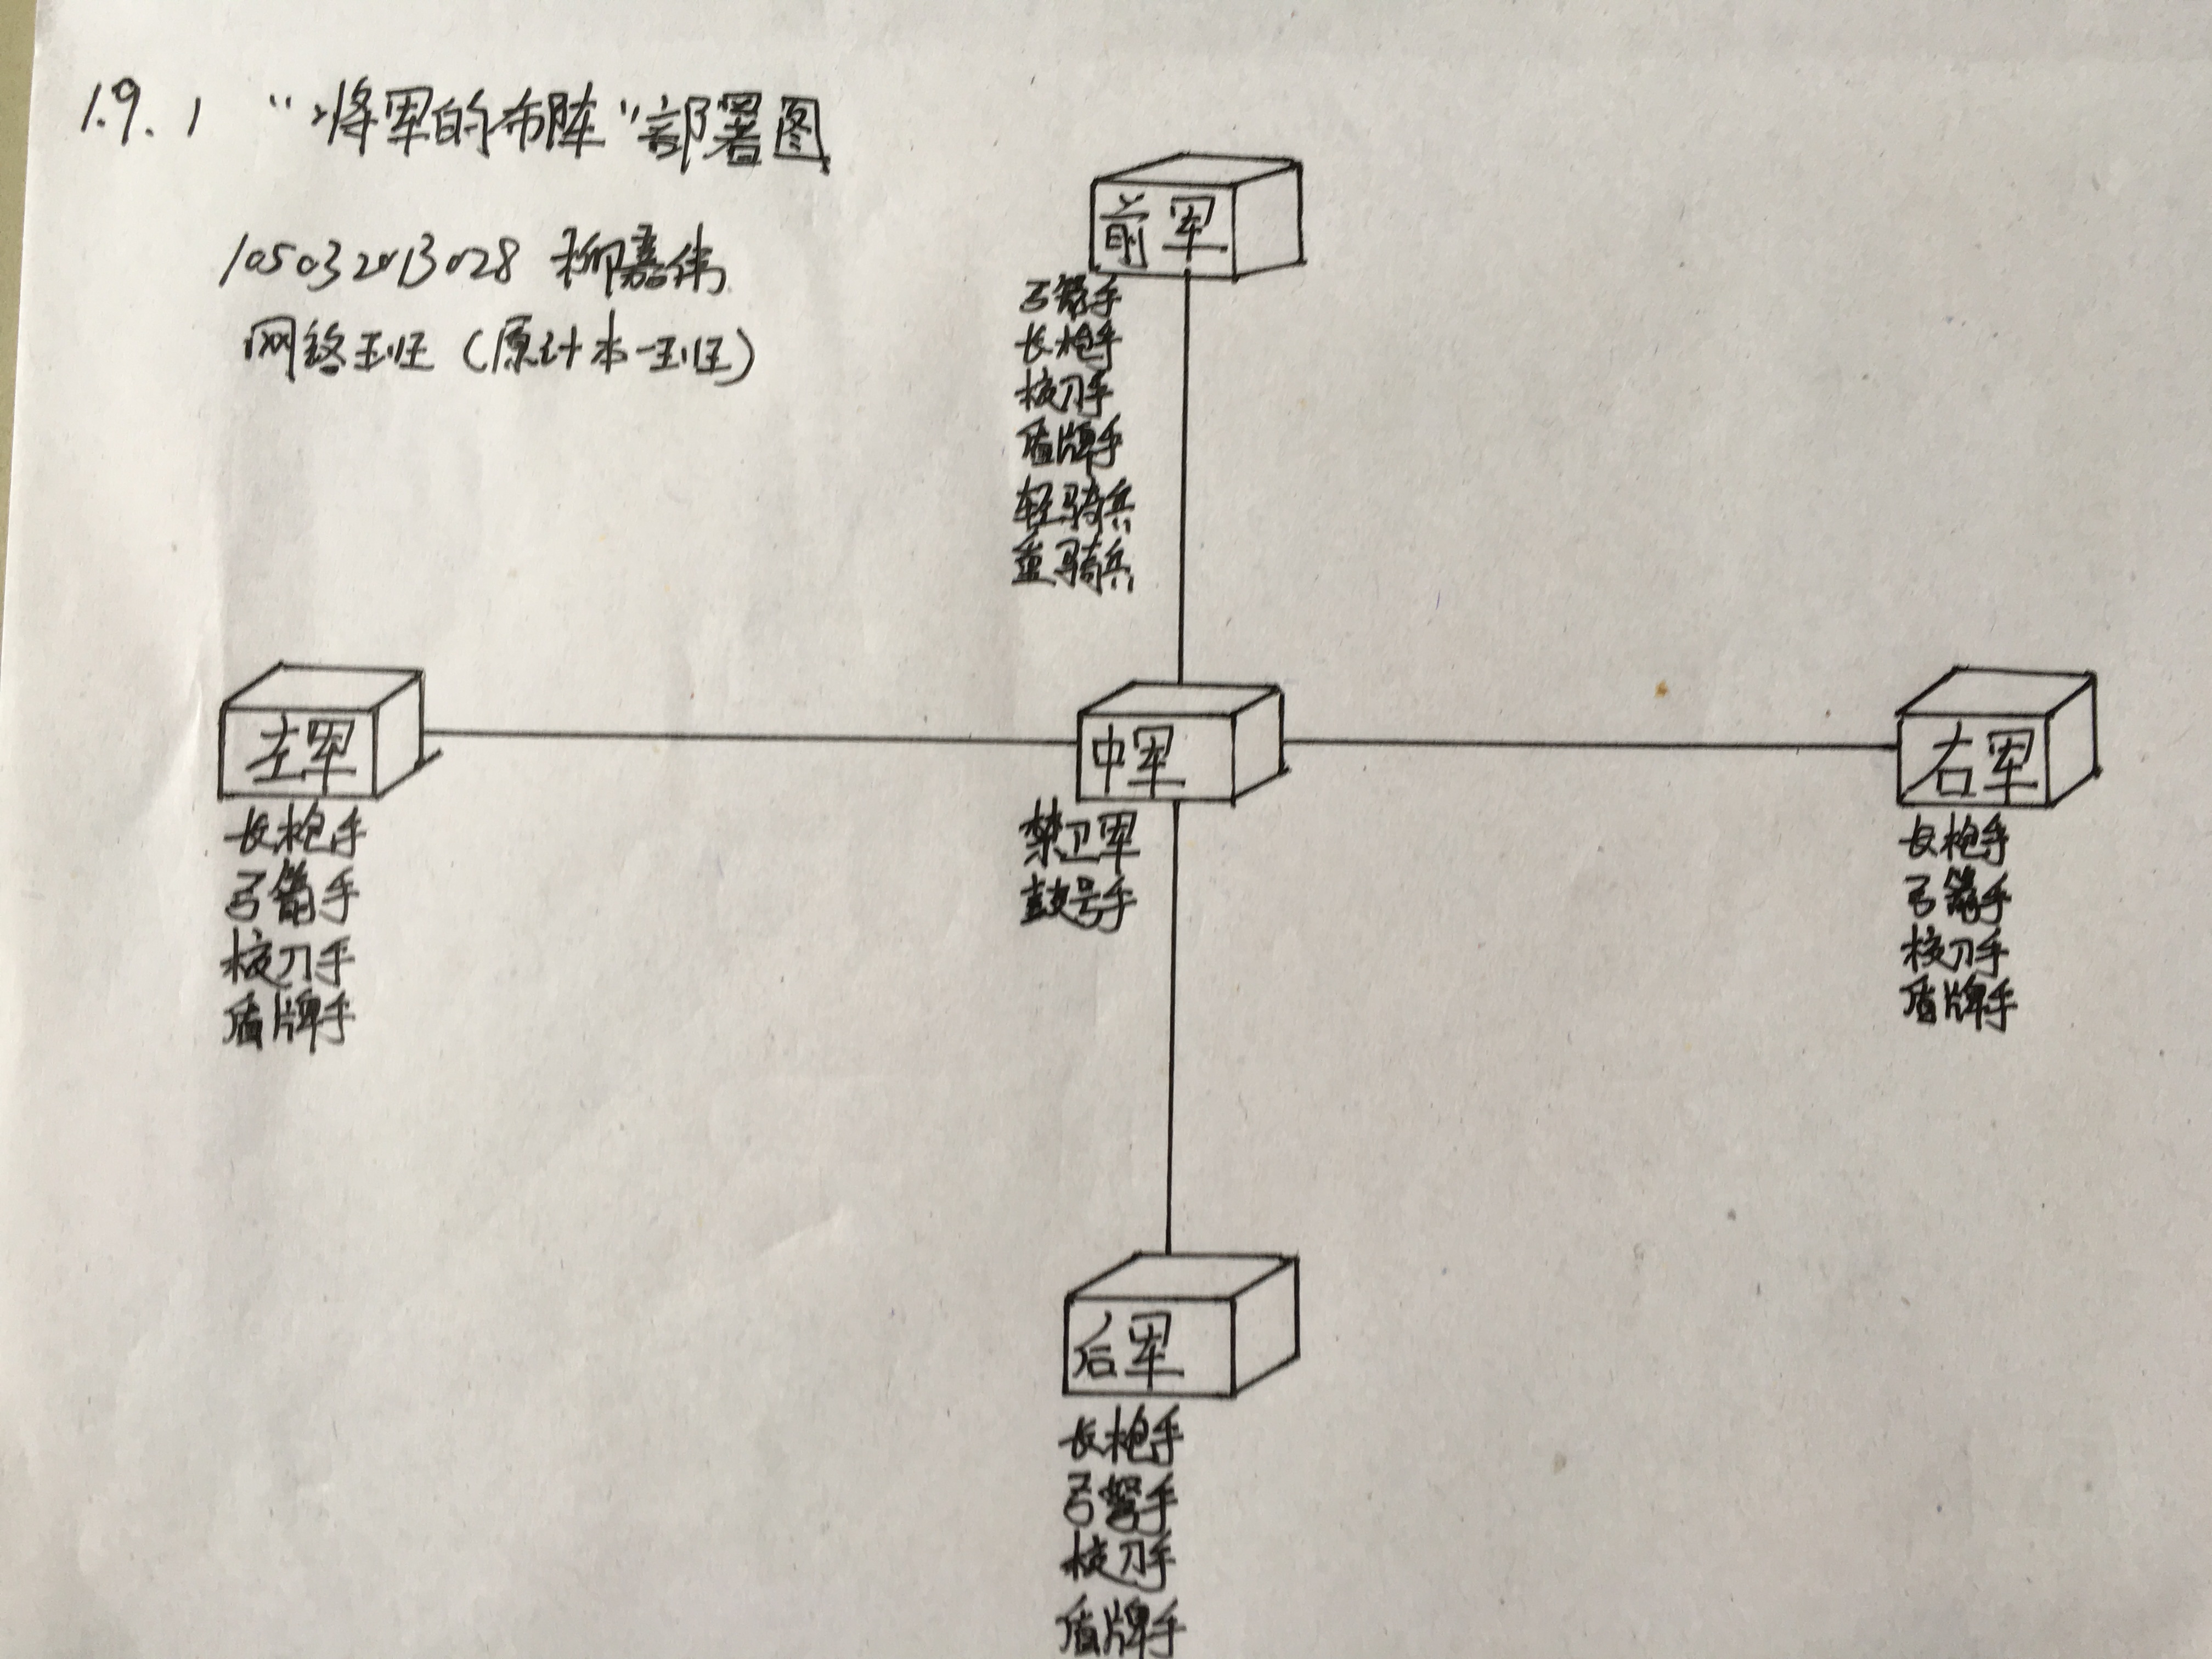 1.9.1 "将军的布阵"部署图
105032013028 柳嘉伟
网络班 (原计本一班)
前军
弓箭手
长枪手
校刀手
盾牌手
轻骑兵
重骑兵
左军
长枪手
弓箭手
校刀手
盾牌手
中军
禁卫军
鼓号手
右军
长枪手
弓箭手
校刀手
盾牌手
后军
长枪手
弓弩手
校刀手
盾牌手